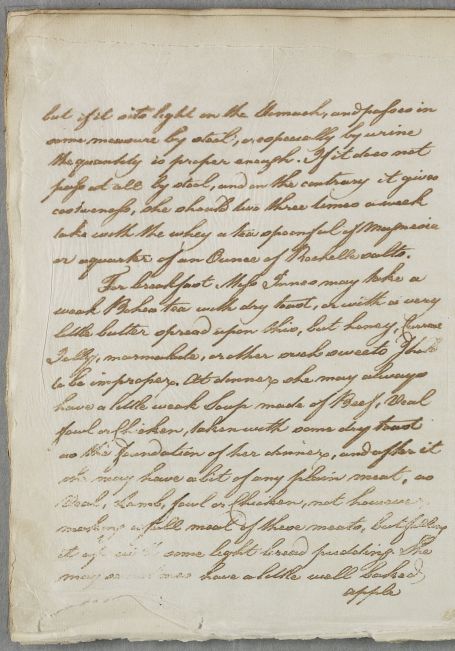 but if it sits light on the Stomach, and passes in
some measure by stool, or especially by urine
the quantity is proper enough. If it does not
pass at all by stool, and on the contrary it gives
costiveness, she should two three times a week
take with the whey a tea spoonful of Magnesia
or a quarter of an Ounce of Rochelle salts.
For breakfast Miss Innes may take a
weak Bohea tea with dry toast, or with a very
little butter spread upon this, but honey, Currant
Jelly, marmalade, or other such sweets I hold
to be improper. At dinner she may always
have a little weak Soup made of Beef, Veal
fowl or Chicken, taken with some dry toast
as the foundation of her dinner, and after it
she may have a bit of any plain meat, as
Veal, Lamb, fowl or Chicken, not however
making a full meal of these meats, but filling
it up with some light bread pudding. She
may sometimes have a little well baked
apple